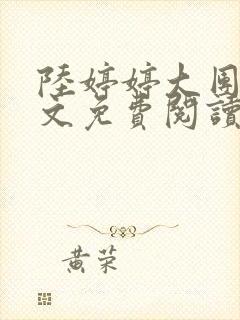 陸婷婷大圍
文免費閱讀
黃荣